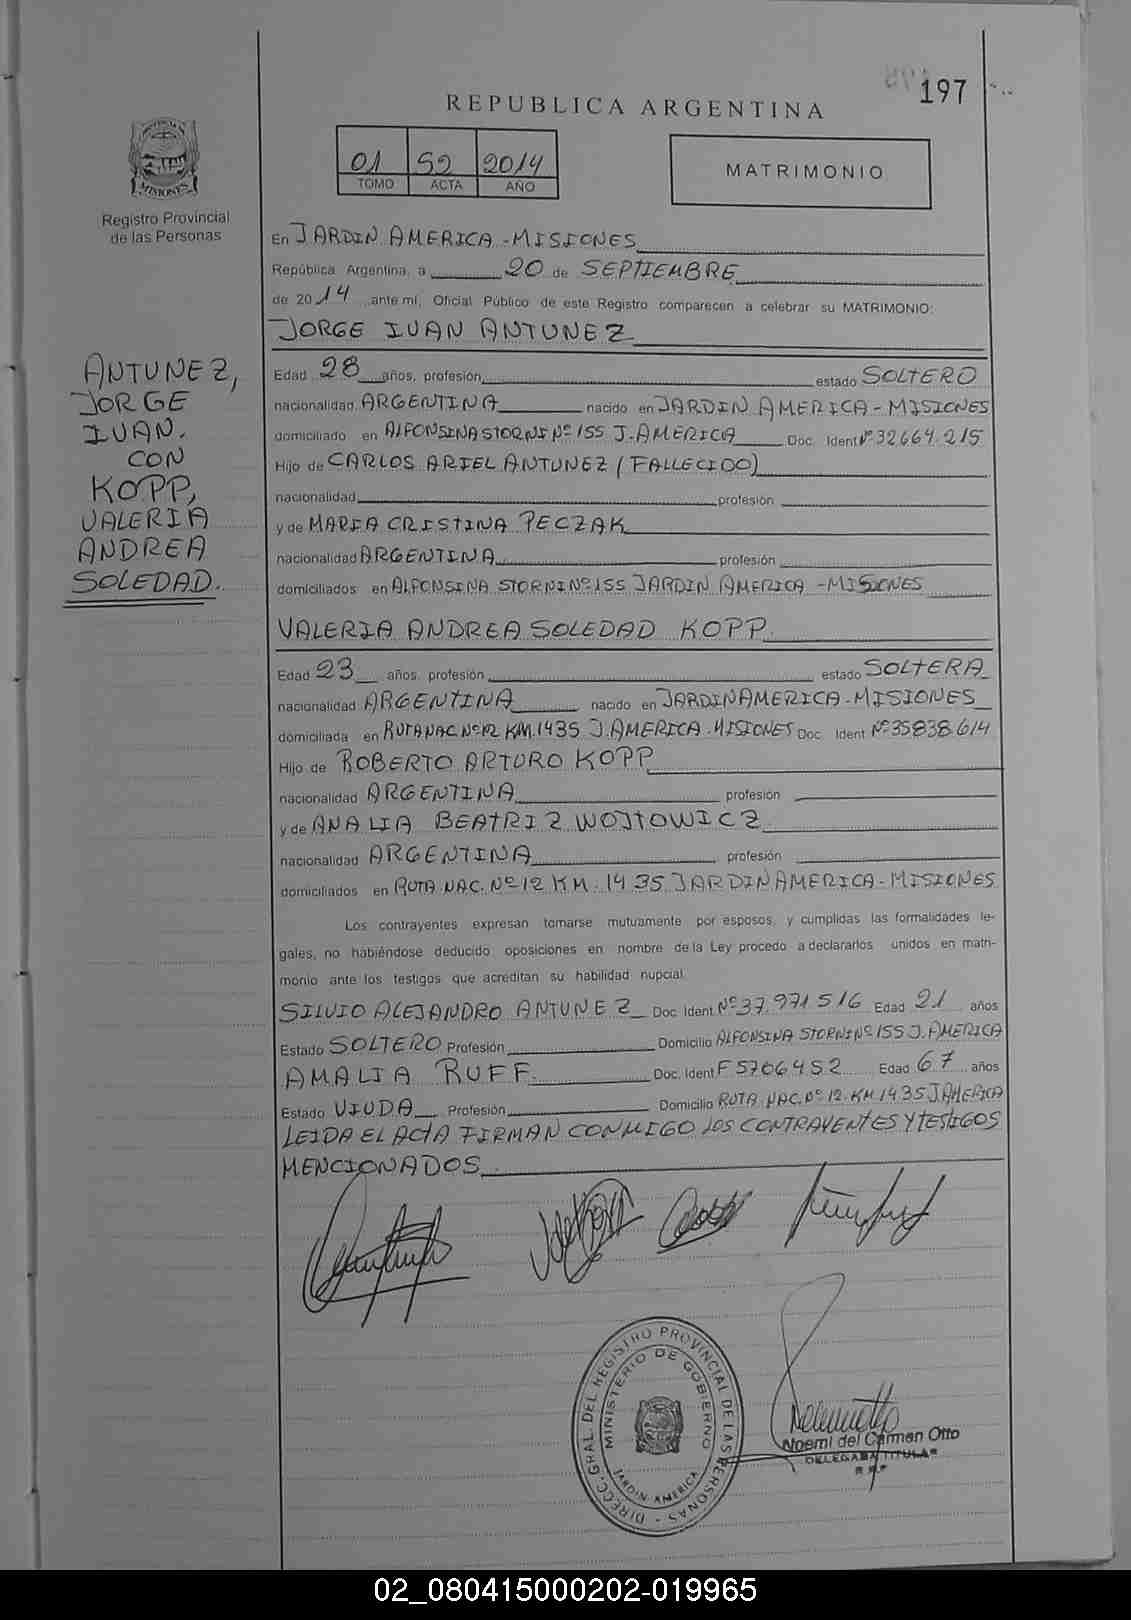 197
REPUBLICA ARGENTINA
01 52 2014
TOMO ACTA AÑO
MATRIMONIO
PROVINCIA DE
MISIONES
Registro Provincial
de las Personas
En JARDIN AMERICA - MISIONES
República Argentina, a 20 de SEPTIEMBRE
de 2014 ante mí, Oficial Público de este Registro comparecen a celebrar su MATRIMONIO:
JORGE IVAN ANTUNEZ
ANTUNEZ,
JORGE
IVAN.
CON
KOPP,
VALERIA
ANDREA
SOLEDAD.
Edad 28 años, profesión estado SOLTERO
nacionalidad ARGENTINA nacido en JARDIN AMERICA - MISIONES
domiciliado en ALFONSINA STORNI Nº 155 J. AMERICA Doc. Ident Nº 32.664.215
Hijo de CARLOS ARIEL ANTUNEZ (FALLECIDO)
nacionalidad profesión
y de MARIA CRISTINA PECZAK
nacionalidad ARGENTINA profesión
domiciliados en ALFONSINA STORNI Nº 155 JARDIN AMERICA - MISIONES
VALERIA ANDREA SOLEDAD KOPP
Edad 23 años, profesión estado SOLTERA
nacionalidad ARGENTINA nacido en JARDIN AMERICA - MISIONES
domiciliada en RUTA NAC. Nº 12 KM. 1435 J. AMERICA - MISIONES Doc. Ident Nº 35838.614
Hijo de ROBERTO ARTURO KOPP
nacionalidad ARGENTINA profesión
y de ANALIA BEATRIZ WOJTOWICZ
nacionalidad ARGENTINA profesión
domiciliados en RUTA NAC. Nº 12 KM. 1435 JARDIN AMERICA - MISIONES
Los contrayentes expresan tomarse mutuamente por esposos, y cumplidas las formalidades le-
gales, no habiéndose deducido oposiciones en nombre de la Ley procedo a declararlos unidos en matri-
monio ante los testigos que acreditan su habilidad nupcial.
SILVIO ALEJANDRO ANTUNEZ Doc. Ident Nº 37.971516 Edad 21 años
Estado SOLTERO Profesión Domicilio ALFONSINA STORNI Nº 155 J. AMERICA
AMALIA RUFF. Doc. Ident F5706452 Edad 67 años
Estado VIUDA Profesión Domicilio RUTA NAC. Nº 12 KM 1435 J. AMERICA
LEIDA EL ACTA FIRMAN CONMIGO LOS CONTRAYENTES Y TESTIGOS
MENCIONADOS
DIRECC. GRAL. DEL REGISTRO PROVINCIAL DE LAS PERSONAS -
MINISTERIO DE GOBIERNO
JARDIN AMERICA
Noemi del Carmen Otto
DELEGADA TITULAR
R.P.P
02_080415000202-019965